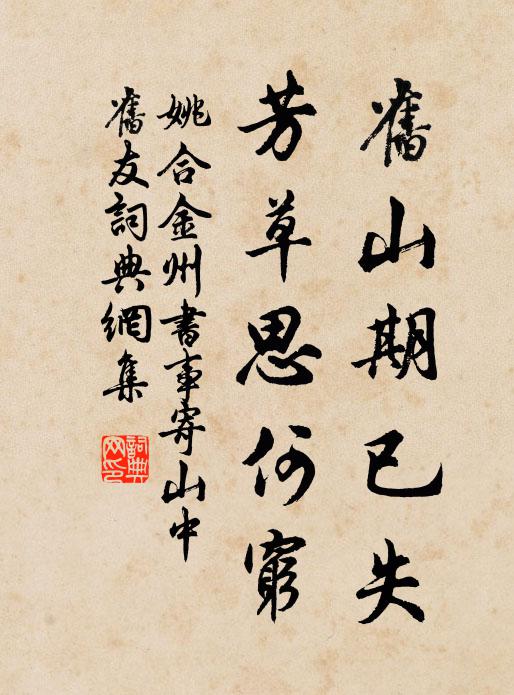 舊山期已失
芳草思何窮
姚合金州書事寄山中
舊友詞典網集
詞典網印